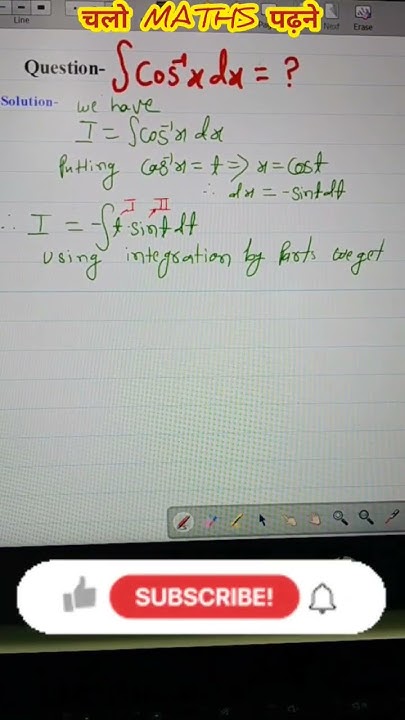 चलो MATHS पढ़ने
Line
Next
Erase
Question- ∫cos⁻¹x dx = ?
Solution- we have
I = ∫cos⁻¹x dx
Putting cos⁻¹x = t => x = cost
∴ dx = -sint dt
I II
∴ I = -∫t·sint dt
using integration by parts we get
SUBSCRIBE!